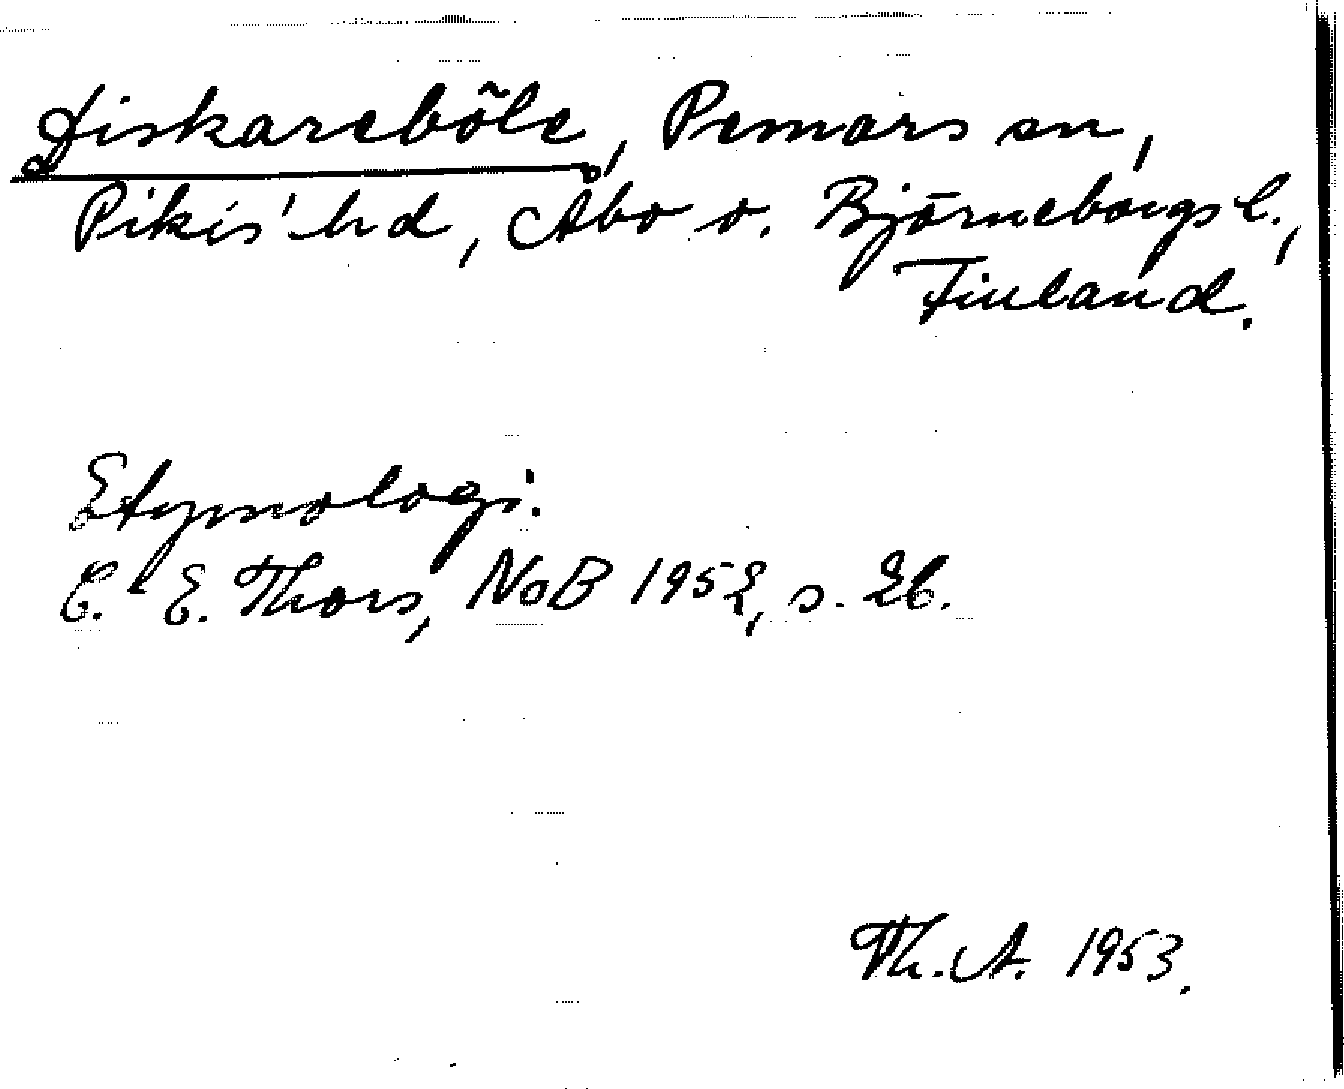 Diskareböle, Pemars sn,
Pikis' hd, Åbo o. Björneborgs l.,
Finland.
Etymologi:
C. E. Thors, NoB 1952, s. 26.
Th. A. 1953.